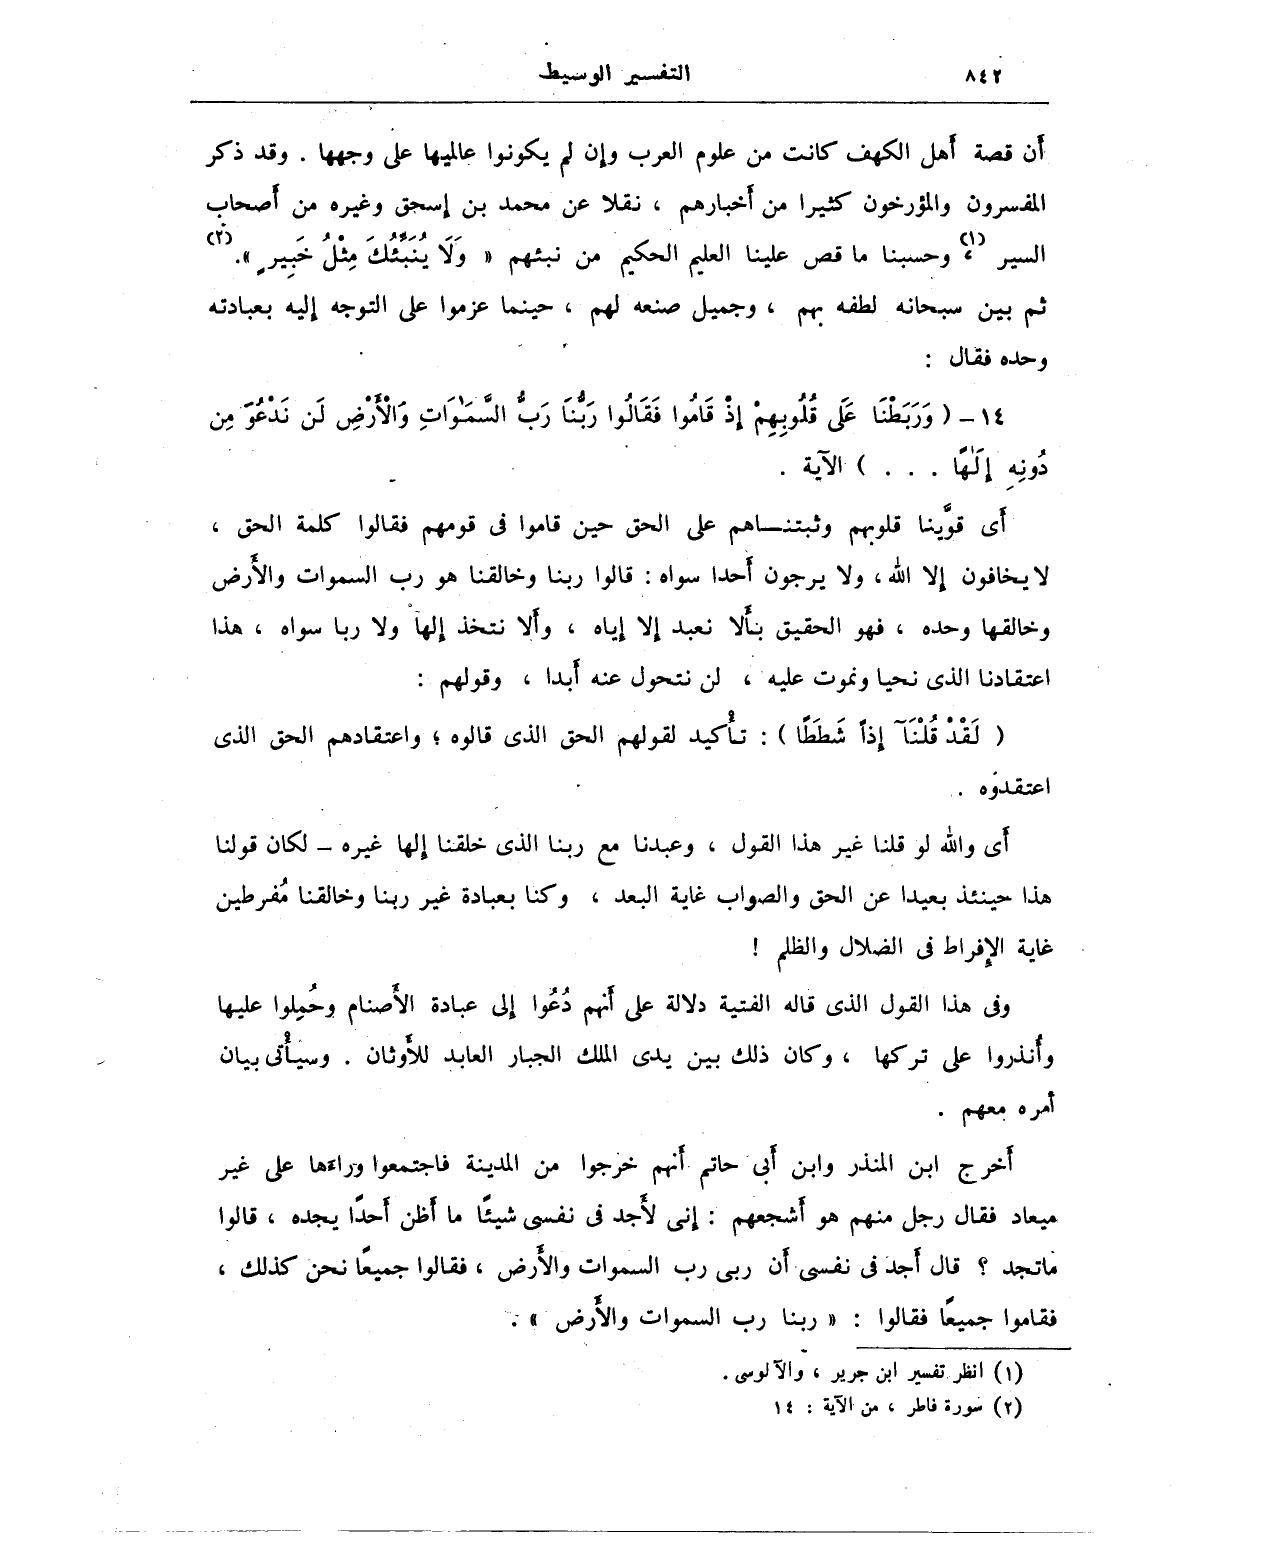 ٨٤٢ التفسير الوسيط
أن قصة أهل الكهف كانت من علوم العرب وإن لم يكونوا عالميها على وجهها . وقد ذكر
المفسرون والمؤرخون كثيرا من أخبارهم ، نقلا عن محمد بن إسحق وغيره من أصحاب
السير (١) ، وحسبنا ما قص علينا العليم الحكيم من نبئهم « وَلَا يُنَبِّئُكَ مِثْلُ خَبِيرٍ » . (٢)
ثم بين سبحانه لطفه بهم ، وجميل صنعه لهم ، حينما عزموا على التوجه إليه بعبادته
وحده فقال :
١٤ - ( وَرَبَطْنَا عَلَى قُلُوبِهِمْ إِذْ قَامُوا فَقَالُوا رَبُّنَا رَبُّ السَّمَٰوَاتِ وَالْأَرْضِ لَن نَدْعُوَ مِن
دُونِهِ إِلَٰهًا . . . ) الآية .
أى قوَّينا قلوبهم وثبتنـاهم على الحق حين قاموا فى قومهم فقالوا كلمة الحق ،
لا يخافون إلا الله ، ولا يرجون أحدا سواه : قالوا ربنا وخالقنا هو رب السموات والأرض
وخالقها وحده ، فهو الحقيق بألا نعبد إلا إياه ، وألا نتخذ إلها ولا ربا سواه ، هذا
اعتقادنا الذى نحيا ونموت عليه ، لن نتحول عنه أبدا ، وقولهم :
( لَقَدْ قُلْنَآ إِذاً شَطَطًا ) : تأكيد لقولهم الحق الذى قالوه ؛ واعتقادهم الحق الذى
اعتقدوه .
أى والله لو قلنا غير هذا القول ، وعبدنا مع ربنا الذى خلقنا إلها غيره – لكان قولنا
هذا حينئذ بعيدا عن الحق والصواب غاية البعد ، وكنا بعبادة غير ربنا وخالقنا مُفرطين
غاية الإفراط فى الضلال والظلم !
وفى هذا القول الذى قاله الفتية دلالة على أنهم دُعُوا إلى عبادة الأصنام وحُمِلوا عليها
وأُنذروا على تركها ، وكان ذلك بين يدى الملك الجبار العابد للأوثان . وسيأتى بيان
أمره معهم .
أخرج ابن المنذر وابن أبى حاتم أنهم خرجوا من المدينة فاجتمعوا وراءها على غير
ميعاد فقال رجل منهم هو أشجعهم : إنى لأجد فى نفسى شيئًا ما أظن أحدًا يجده ، قالوا
ماتجد ؟ قال أجد فى نفسى أن ربى رب السموات والأرض ، فقالوا جميعًا نحن كذلك ،
فقاموا جميعًا فقالوا : « ربنا رب السموات والأرض » .
(١) انظر تفسير ابن جرير ، والآلوسى .
(٢) سورة فاطر ، من الآية : ١٤